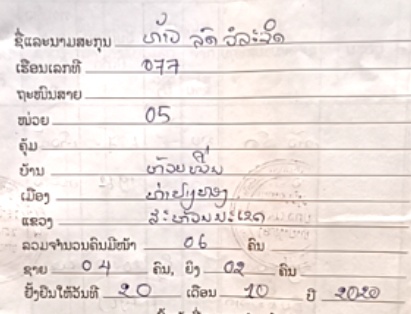 ຊື່ແລະນາມສະກຸນ ທ້າວ ລົດ ວໍລະຈິດ
ເຮືອນເລກທີ 077
ຖະໜົນສາຍ
ໜ່ວຍ 05
ຄຸ້ມ
ບ້ານ ຫ້ວຍ
ເມືອງ
ແຂວງ ສະຫວັນນະເຂດ
ລວມຈຳນວນຄົນມີໜ້າ 06 ຄົນ
ຊາຍ 04 ຄົນ, ຍິງ 02 ຄົນ
ຢັ້ງຢືນໃຫ້ວັນທີ 20 ເດືອນ 10 ປີ 2020